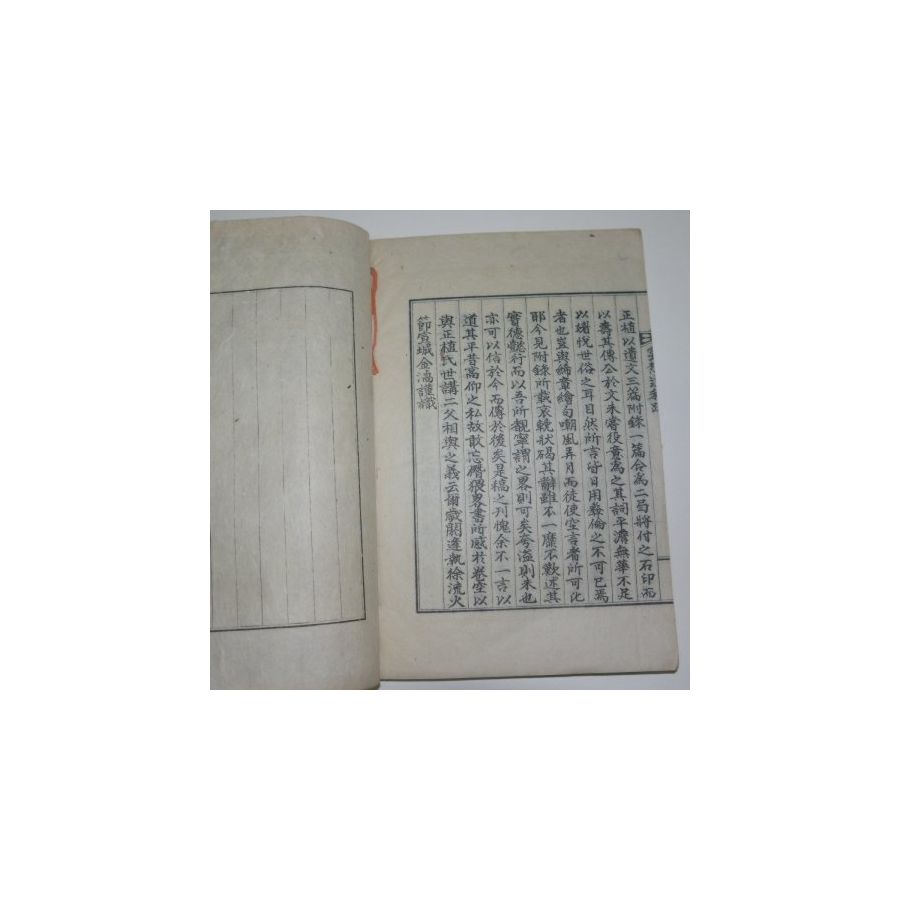 正植以遺文三篇附錄一篇合爲二局將付之石印而
以壽其傳公於文未嘗役意爲之其詞平澹無華不足
以媚悅世俗之耳目然所言皆日用彝倫之不可已焉
者也豈與締章繪句嘲風弄月而徒使空言者所可比
耶今見附錄所載哀輓狀碣其辭雖不一靡不歎述其
實德懿行而以吾所覩寧謂之畧則可矣夸溢則未也
亦可以信於今而傳於後矣是稿之刊愧余不一言以
道其平昔高仰之私故敢忘僭猥畧書所感於卷空以
與正植氏世講二父相與之義云爾歲閼逢執徐流火
節宣城金漓謹識